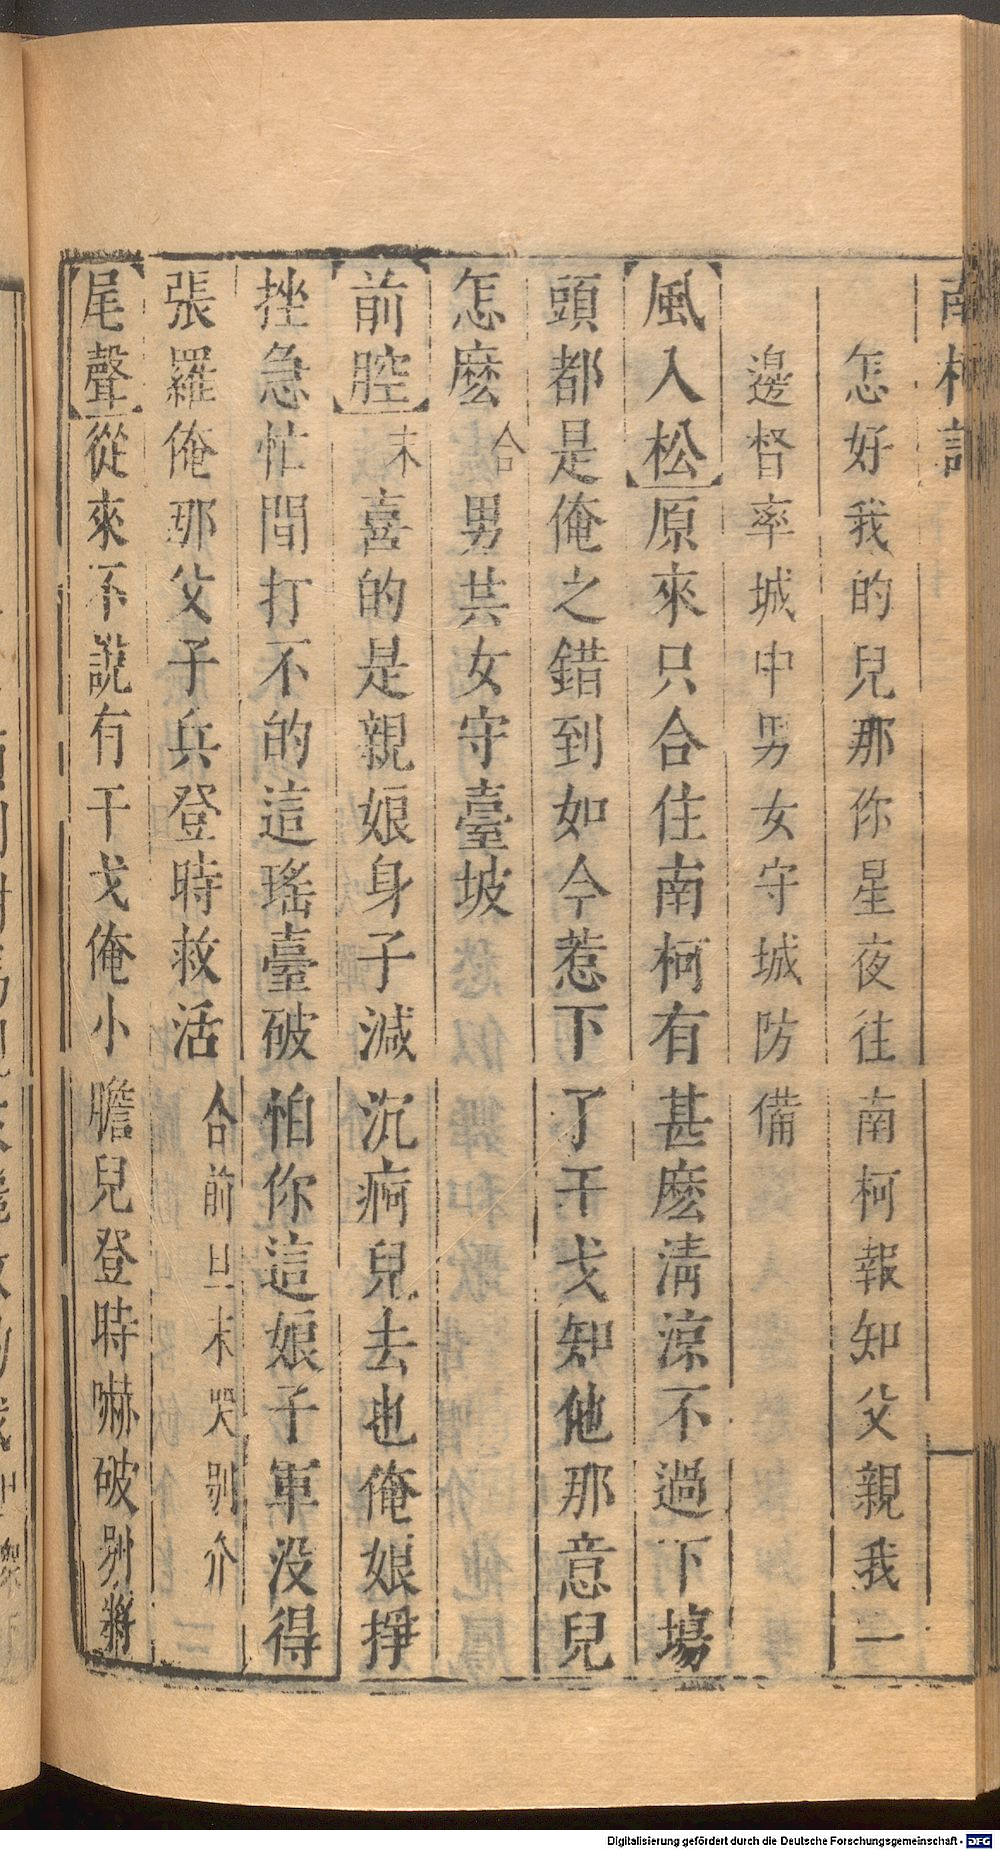 南柯記
怎好我的兒那你星夜往南柯報知父親我一
邊督率城中男女守城防備
風入松原來只合住南柯有甚麽淸涼不過下塲
頭都是俺之錯到如今惹下了干戈知他那意兒
怎麽合男共女守臺坡
前腔末喜的是親娘身子減沉痾兒去也俺娘掙
挫急忙間打不的這瑤臺破怕你這娘子軍没得
張羅俺那父子兵登時救活合前旦末哭別介
尾聲從來不說有干戈俺小膽兒登時嚇破別將
Digitalisierung gefördert durch die Deutsche Forschungsgemeinschaft - DFG